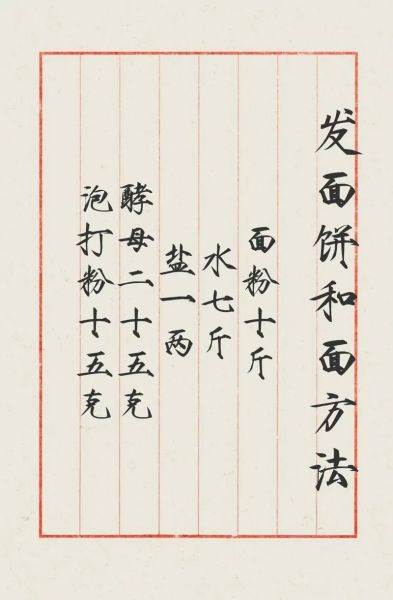 发面饼和面方法
面粉十斤
水七斤
盐一两
酵母二十五克
泡打粉十五克